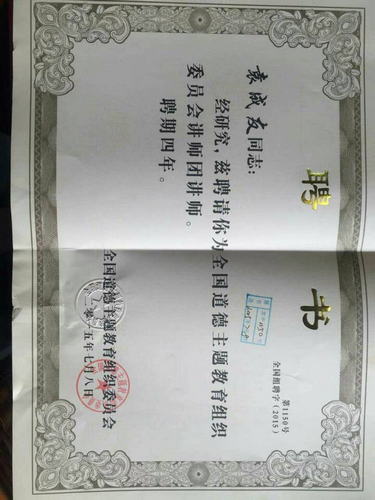 聘书
全国组聘字（2015）
第1150号
袁成友同志：
经研究，兹聘请你为全国道德主题教育组织
委员会讲师团讲师。
聘期四年。
全国道德主题教育组织委员会
二零一五年七月八日